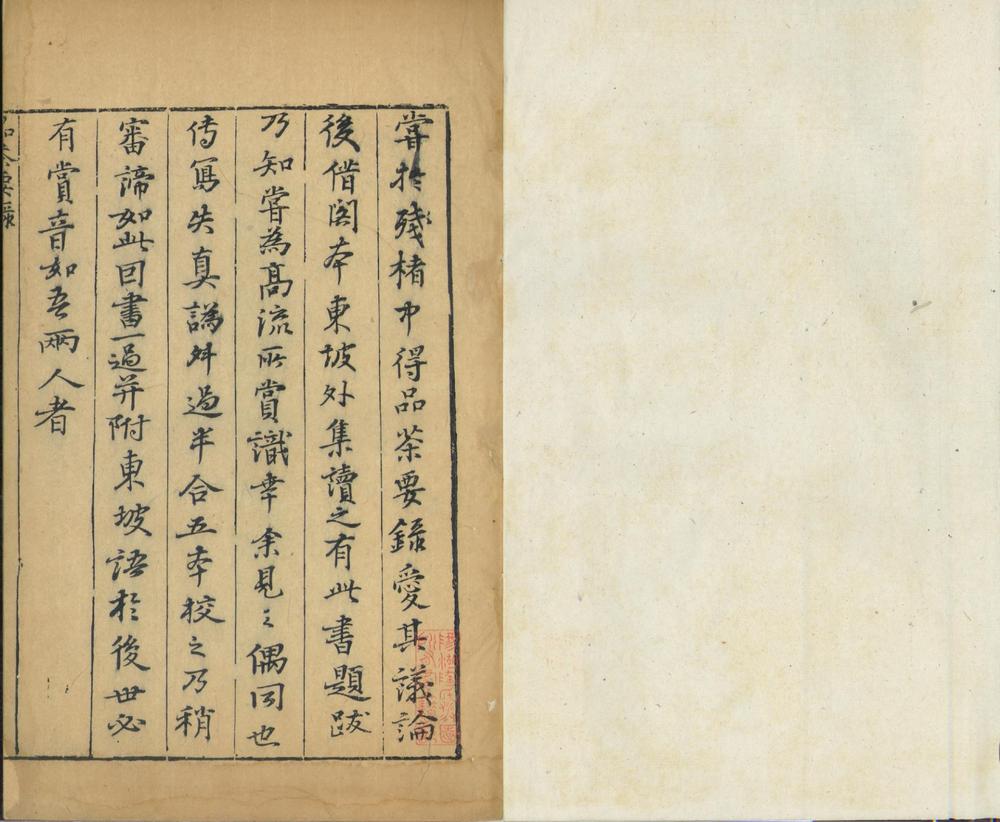 嘗於殘楮中得品茶要錄愛其議論
後借閣本東坡外集讀之有此書題跋
乃知嘗為高流所賞識幸余見之偶同也
傳寫失真譌舛過半合五本校之乃稍
審諦如此囙書一過并附東坡語於後世必
有賞音如吾兩人者
品茶要錄